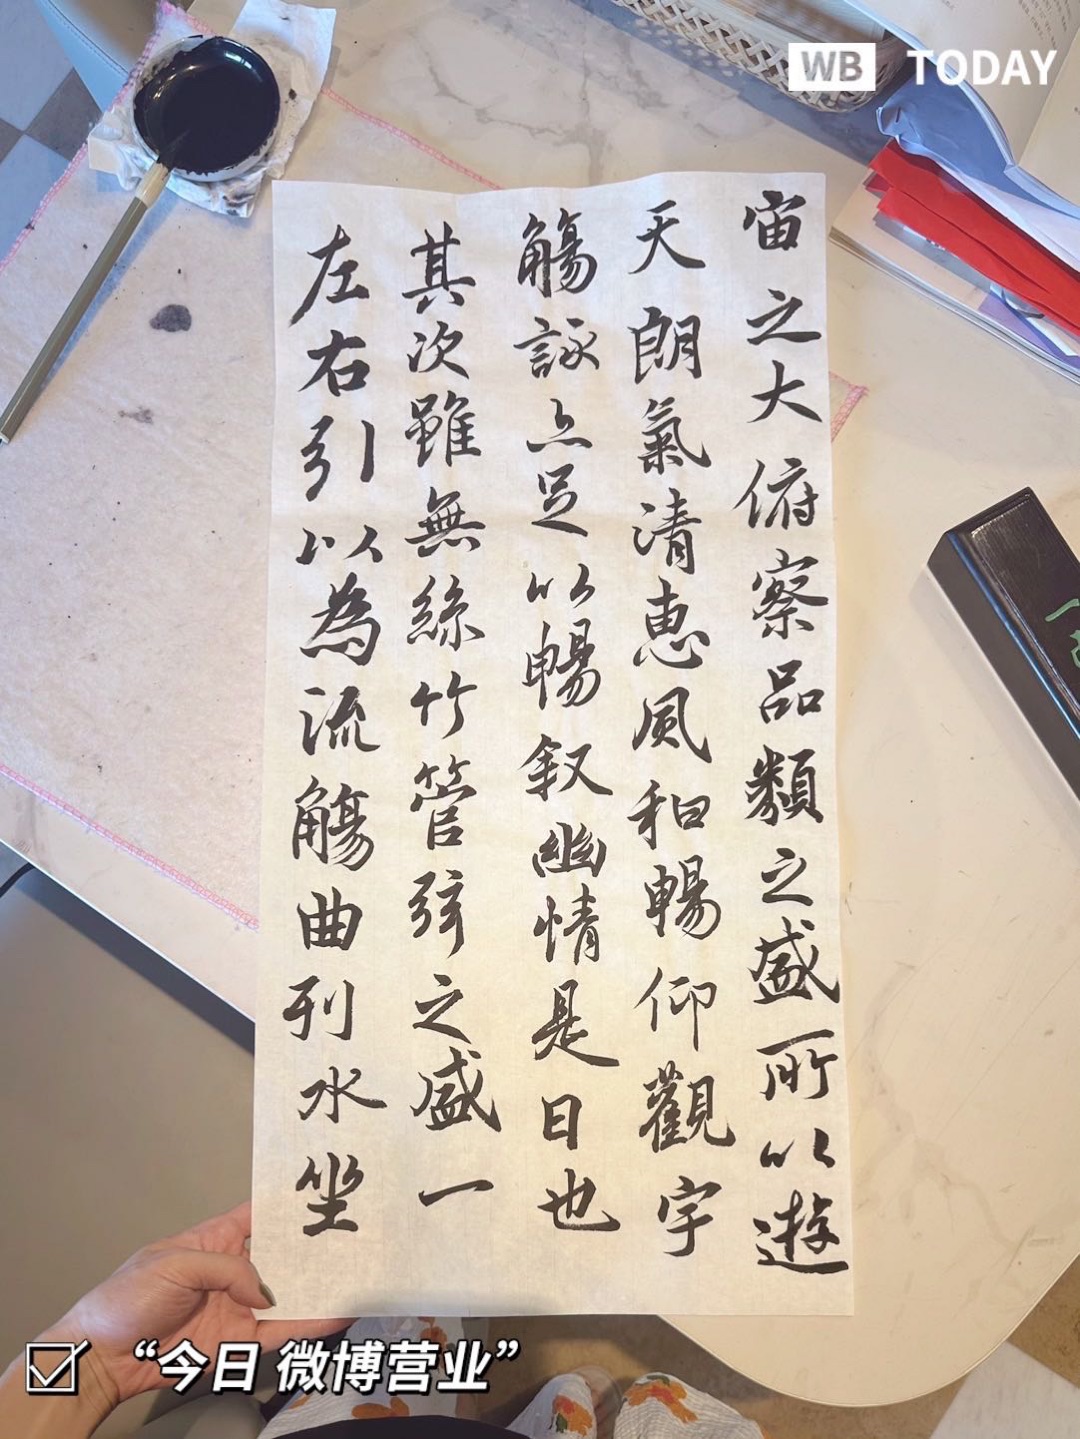 WB TODAY
左右引以為流觴曲列水坐
其次雖無絲竹管弦之盛一
觴詠亦足以暢叙幽情是日也
天朗氣清惠風和暢仰觀宇
宙之大俯察品類之盛所以遊
“今日 微博营业”